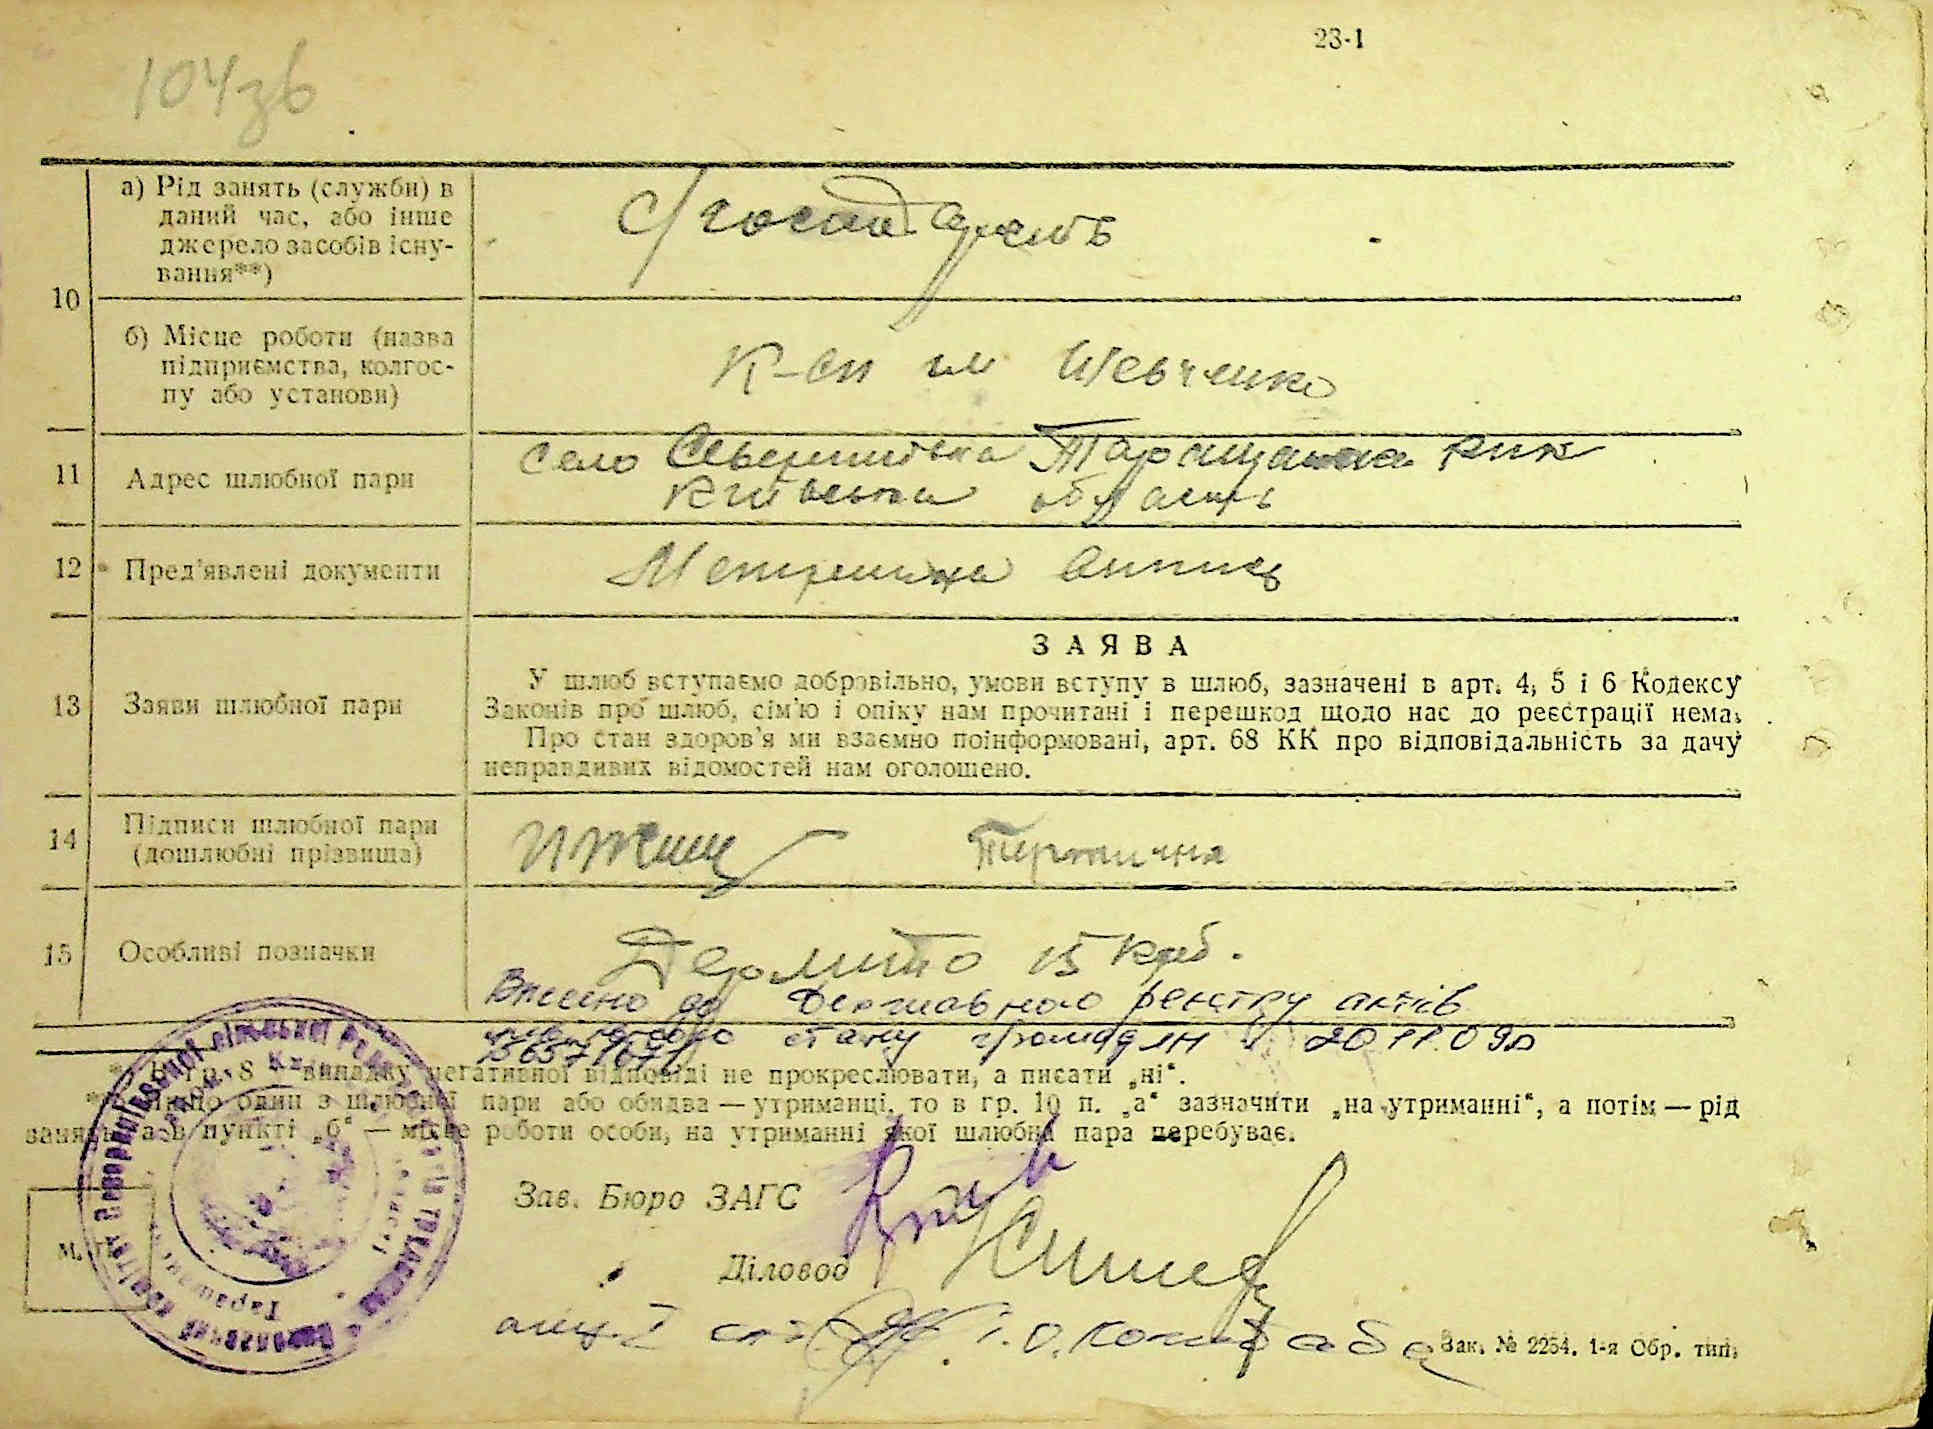 23-1
104зв
10
а) Рід занять (служби) в
даний час, або інше
джерело засобів існу-
вання**)
с/господарств
б) Місце роботи (назва
підприємства, колгос-
пу або установи)
К-сп ім Шевченко
11
Адрес шлюбної пари
село Северинівка Таращанська
Київська область
12
Пред'явлені документи
Метрична
13
Заяви шлюбної пари
ЗАЯВА
У шлюб вступаємо добровільно, умови вступу в шлюб, зазначені в арт. 4, 5 і 6 Кодексу
Законів про шлюб, сім'ю і опіку нам прочитані і перешкод щодо нас до реєстрації нема.
Про стан здоров'я ми взаємно поінформовані, арт. 68 КК про відповідальність за дачу
неправдивих відомостей нам оголошено.
14
Підписи шлюбної пари
(дошлюбні прізвища)
15
Особливі позначки
Гермито 15 крб.
Внесено до Державного реєстру актів
стану громадян 20.11.09р
* В гр. 8 випадку негативної відповіді не прокреслювати, а писати „ні“.
** Якщо один з шлюбної пари або обидва — утриманці, то в гр. 10 п. „а“ зазначити „на утриманні“, а потім — рід
занять, а в пункті „б“ — місце роботи особи, на утриманні якої шлюбна пара перебуває.
Зав. Бюро ЗАГС
М. П.
Діловод
Зак. № 2254. 1-я Обр. тип.